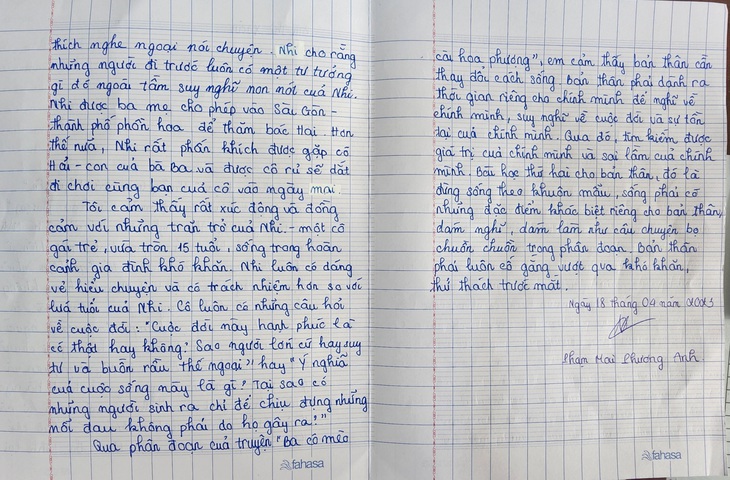 thích nghe ngoại nói chuyện. Nhi cho rằng
những người đi trước luôn có một tư tưởng
gì đó ngoài tầm suy nghĩ non nớt của Nhi.
Nhi được ba mẹ cho phép vào Sài Gòn -
thành phố phồn hoa để thăm bác Hai. Hơn
thế nữa, Nhi rất phấn khích được gặp cô
Hai - con của bà Ba và được cô rủ sẽ dắt
đi chơi cùng bạn của cô vào ngày mai.
Tôi cảm thấy rất xúc động và đồng
cảm với những trăn trở của Nhi - một cô
gái trẻ, vừa tròn 15 tuổi, sống trong hoàn
cảnh gia đình khó khăn. Nhi luôn có dáng
vẻ hiểu chuyện và có trách nhiệm hơn so với
luá tuổi của Nhi. Cô luôn có những câu hỏi
về cuộc đời: "Cuộc đời này hạnh phúc là
có thật hay không? Sao người lớn cứ hay suy
tư và buồn rầu thế ngoại?" hay "Ý nghĩa
của cuộc sống này là gì? Tại sao có
những người sinh ra chỉ để chịu đựng những
nỗi đau không phải do họ gây ra!"
Qua phân đoạn của truyện "Ba cô mèo
fahasa
cài hoa phượng", em cảm thấy bản thân cần
thay đổi cách sống, bản thân phải dành ra
thời gian riêng cho chính mình để nghĩ về
chính mình, suy nghĩ về cuộc đời và sự tồn
tại của chính mình. Qua đó, tìm kiếm được
giá trị của chính mình và sai lầm của chính
mình. Bài học thứ hai cho bản thân, đó là
đừng sống theo khuôn mẫu, sống phải có
những đặc điểm khác biệt riêng cho bản thân,
dám nghĩ, dám làm như câu chuyện bọ
chuồn chuồn trong phân đoạn. Bản thân
phải luôn cố gắng vượt qua khó khăn,
thử thách trước mắt.
Ngày 18 tháng 04 năm
Phạm Mai Phương Anh
fahasa